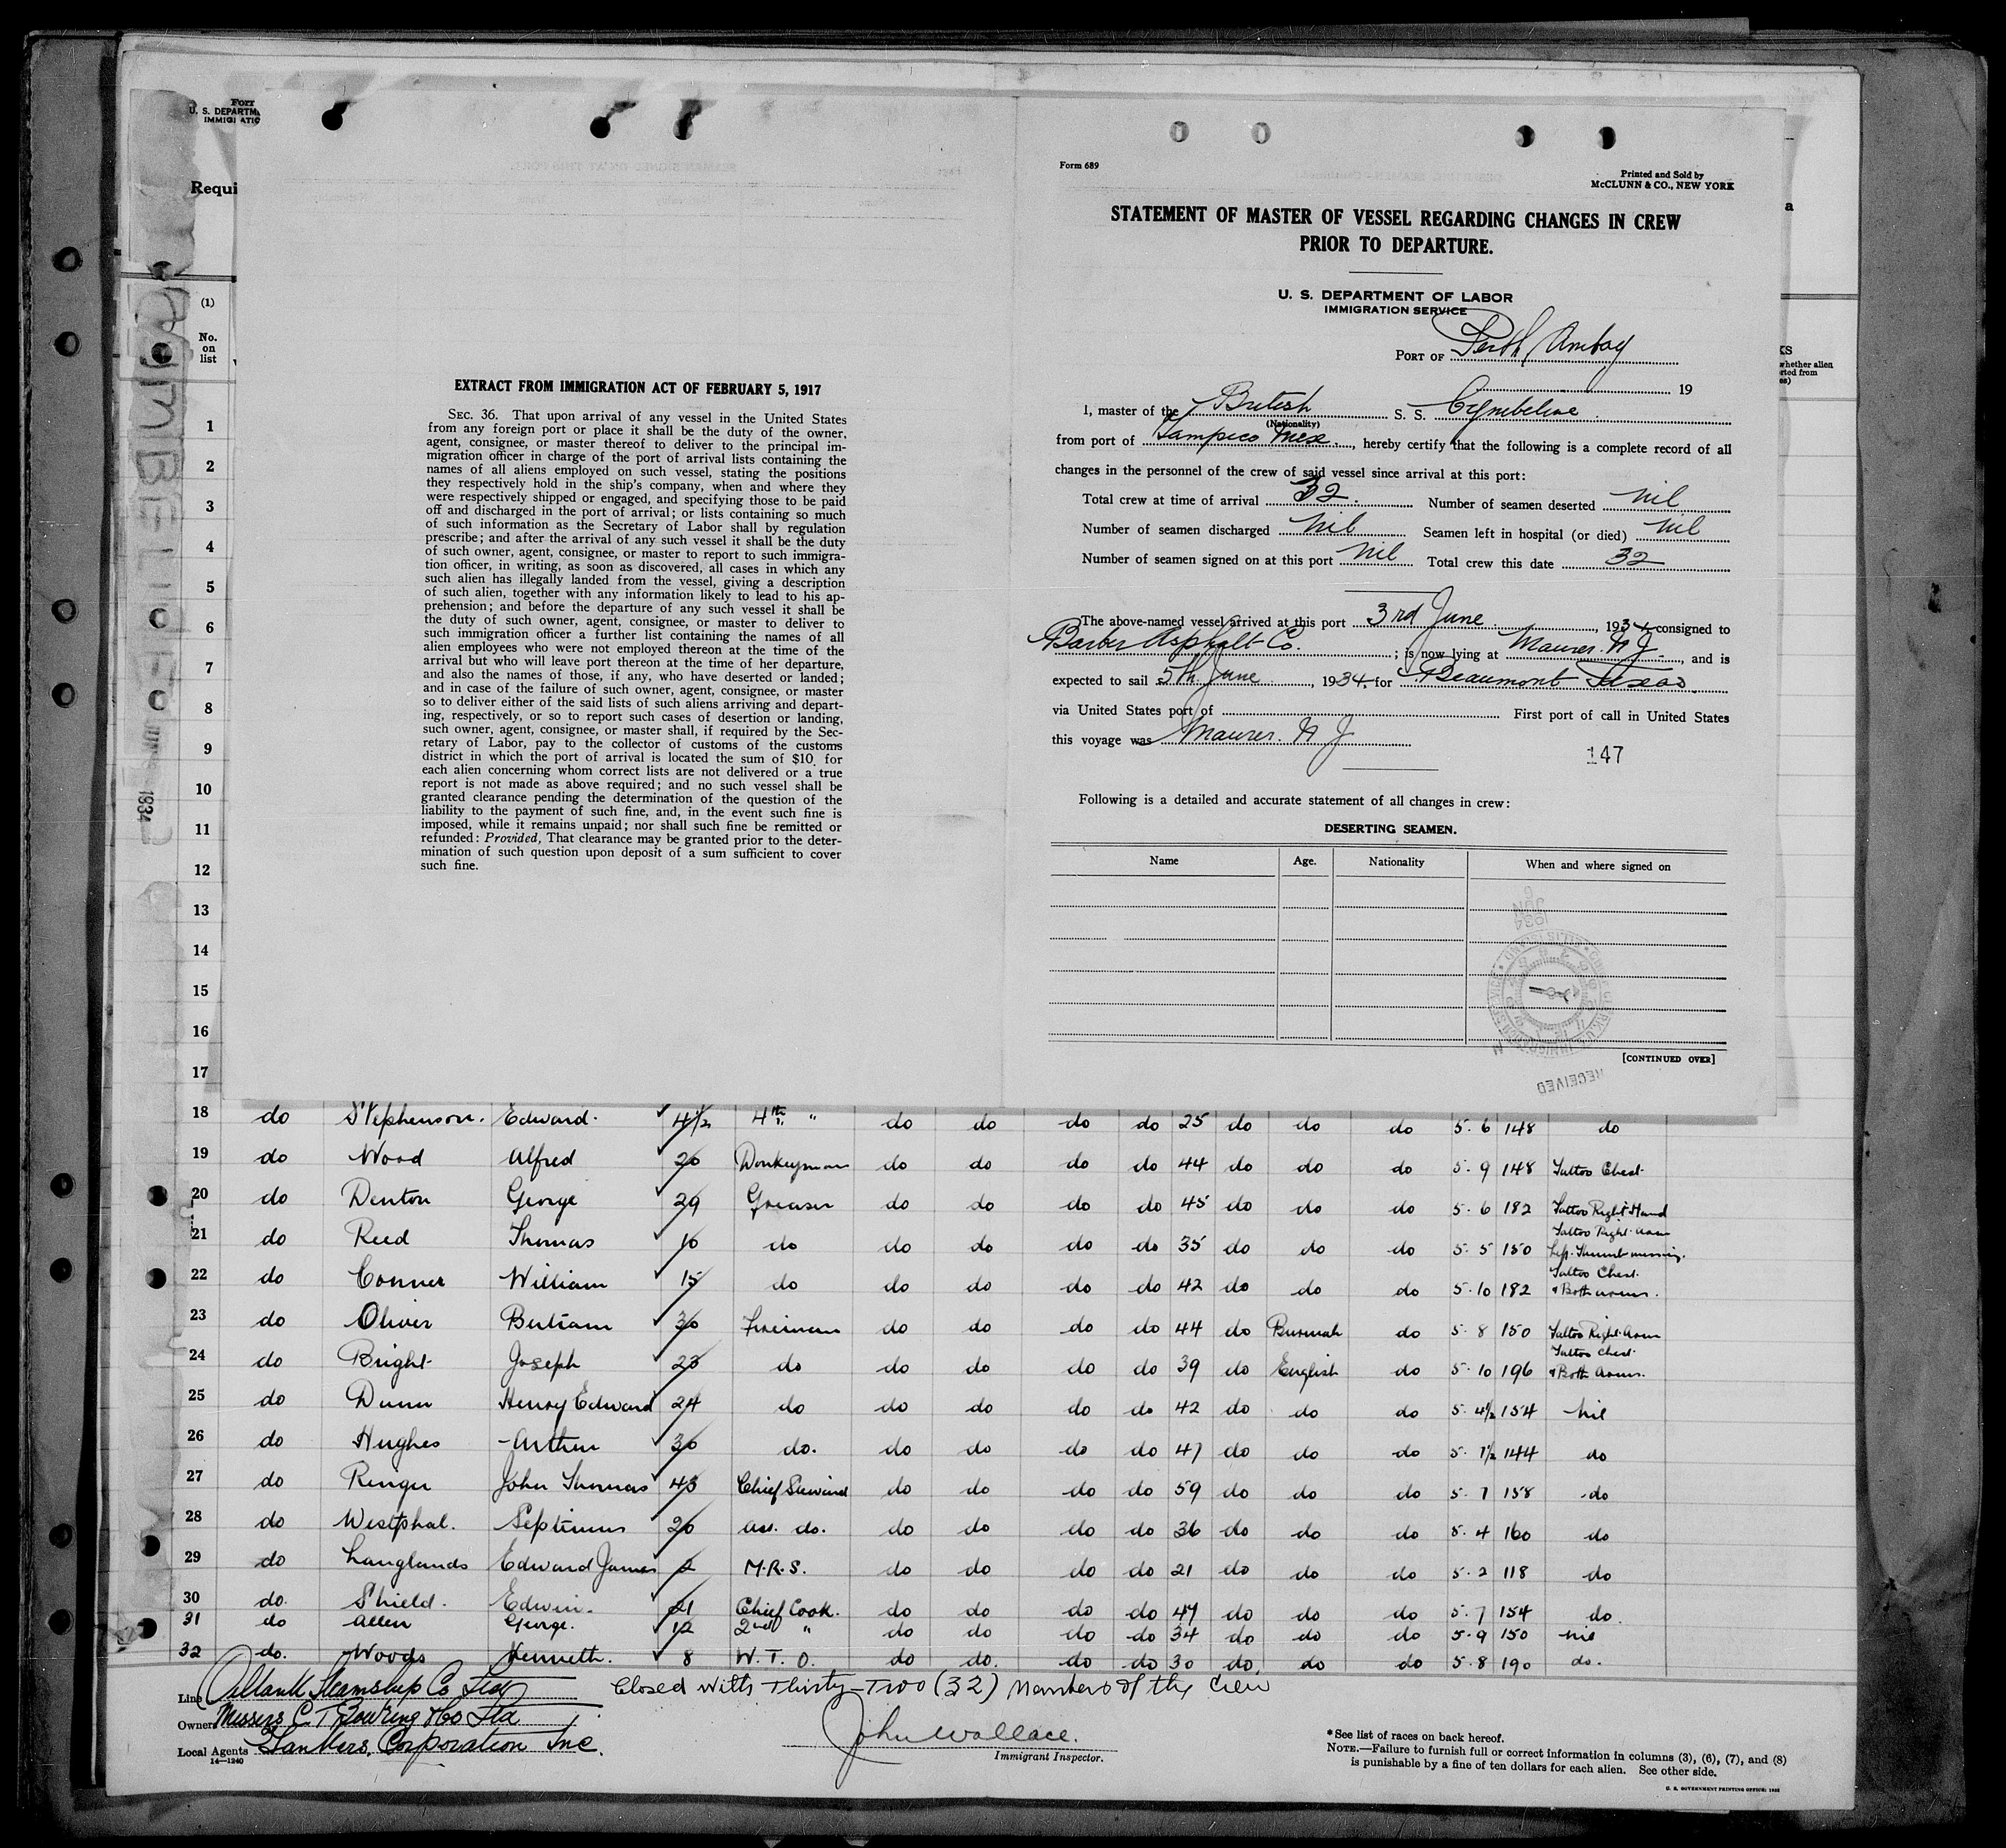 Form
U. S. DEPARTM
IMMIGRATIO
Requi
(1)
No.
on
list
CYMBELINE
1934
1
2
3
4
5
6
7
8
9
10
11
12
13
14
15
16
17
EXTRACT FROM IMMIGRATION ACT OF FEBRUARY 5, 1917
SEC. 36. That upon arrival of any vessel in the United States
from any foreign port or place it shall be the duty of the owner,
agent, consignee, or master thereof to deliver to the principal im-
migration officer in charge of the port of arrival lists containing the
names of all aliens employed on such vessel, stating the positions
they respectively hold in the ship's company, when and where they
were respectively shipped or engaged, and specifying those to be paid
off and discharged in the port of arrival; or lists containing so much
of such information as the Secretary of Labor shall by regulation
prescribe; and after the arrival of any such vessel it shall be the duty
of such owner, agent, consignee, or master to report to such immigra-
tion officer, in writing, as soon as discovered, all cases in which any
such alien has illegally landed from the vessel, giving a description
of such alien, together with any information likely to lead to his ap-
prehension; and before the departure of any such vessel it shall be
the duty of such owner, agent, consignee, or master to deliver to
such immigration officer a further list containing the names of all
alien employees who were not employed thereon at the time of the
arrival but who will leave port thereon at the time of her departure,
and also the names of those, if any, who have deserted or landed;
and in case of the failure of such owner, agent, consignee, or master
so to deliver either of the said lists of such aliens arriving and depart-
ing, respectively, or so to report such cases of desertion or landing,
such owner, agent, consignee, or master shall, if required by the Sec-
retary of Labor, pay to the collector of customs of the customs
district in which the port of arrival is located the sum of $10 for
each alien concerning whom correct lists are not delivered or a true
report is not made as above required; and no such vessel shall be
granted clearance pending the determination of the question of the
liability to the payment of such fine, and, in the event such fine is
imposed, while it remains unpaid; nor shall such fine be remitted or
refunded: Provided, That clearance may be granted prior to the deter-
mination of such question upon deposit of a sum sufficient to cover
such fine.
Form 689
Printed and Sold by
McCLUNN & CO., NEW YORK
STATEMENT OF MASTER OF VESSEL REGARDING CHANGES IN CREW
PRIOR TO DEPARTURE.
U. S. DEPARTMENT OF LABOR
IMMIGRATION SERVICE
PORT OF Perth Amboy
19
I, master of the British S. S. Cymbeline
(Nationality)
from port of Tampico Mex., hereby certify that the following is a complete record of all
changes in the personnel of the crew of said vessel since arrival at this port:
Total crew at time of arrival 32. Number of seamen deserted nil
Number of seamen discharged nil Seamen left in hospital (or died) nil
Number of seamen signed on at this port nil Total crew this date 32
The above-named vessel arrived at this port 3rd June, 1934 consigned to
Barber Asphalt Co.; is now lying at Maurer. N J., and is
expected to sail 5th June, 1934, for Beaumont Texas
via United States port of First port of call in United States
this voyage was Maurer. N J
147
Following is a detailed and accurate statement of all changes in crew:
DESERTING SEAMEN.
Name Age. Nationality When and where signed on
JUN 1934
RECEIVED
[CONTINUED OVER]
KS
whether alien
rted from
es)
18 do Stephenson. Edward. 4½ 4th " do do do do 25 do do do 5. 6 148 do
19 do Wood Alfred 20 Donkeyman do do do do 44 do do do 5. 9 148 Tattoo Chest
20 do Denton George 29 Greaser do do do do 45 do do do 5. 6 182 Tattoo Right Hand
21 do Reed Thomas 10 do do do do do 35 do do do 5. 5 150 Tattoo Right arm Left Thumb missing.
22 do Conner William 15 do do do do do 42 do do do 5. 10 182 Tattoo Chest. & Both arms.
23 do Oliver Bertram 30 Fireman do do do do 44 do Burmah do 5. 8 150 Tattoo Right arm
24 do Bright Joseph 23 do do do do do 39 do English do 5. 10 196 Tattoo chest & Both Arms.
25 do Dunn Henry Edward 24 do do do do do 42 do do do 5. 4½ 154 nil
26 do Hughes Arthur 30 do. do do do do 47 do do do 5. 1½ 144 do
27 do Ringer John Thomas 43 Chief Steward do do do do 59 do do do 5. 7 158 do
28 do Westphal. Septimus 20 ass. do. do do do do 36 do do do 5. 4 160 do
29 do Langlands Edward James 2 M.R.S. do do do do 21 do do do 5. 2 118 do
30 do. Shield. Edwin. 21 Chief Cook. do do do do 47 do do do 5. 7 154 do.
31 do Allen George. 12 2nd " do do do do 34 do do do 5. 9 150 nil
32 do. Woods Kenneth. 8 W. T. O. do do. do do 30 do. do do 5. 8 190 do.
Closed with Thirty-Two (32) Members of the Crew
Line Bear Creek Steamship Co Ltd
Owners Messrs C. T. Bowring & Co Ltd
Local Agents Tankers Corporation Inc.
14—1240
John Wallace.
Immigrant Inspector.
*See list of races on back hereof.
NOTE.—Failure to furnish full or correct information in columns (3), (6), (7), and (8)
is punishable by a fine of ten dollars for each alien. See other side.
U. S. GOVERNMENT PRINTING OFFICE: 1932